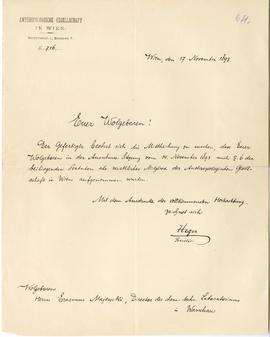 ANTHROPOLOGISCHE GESELLSCHAFT
IN WIEN.
64.
Wien, den 17 November 1893.
Euer Wolgeboren!
Der Gefertigte beehrt sich die Mittheilung zu machen, dass Euer
Wolgeboren in der Ausschuss-Sitzung vom 14. November 1893 nach §. 6 der
beiliegenden Statuten als wirkliches Mitglied der Anthropologischen Gesell-
schaft in Wien aufgenommen wurden.
Mit dem Ausdrucke der vollkommensten Hochachtung
zeichnet sich
Heger
Wolgeboren
Herrn Erasmus Majewski, Director des chem. Laboratoriums
in Warschau